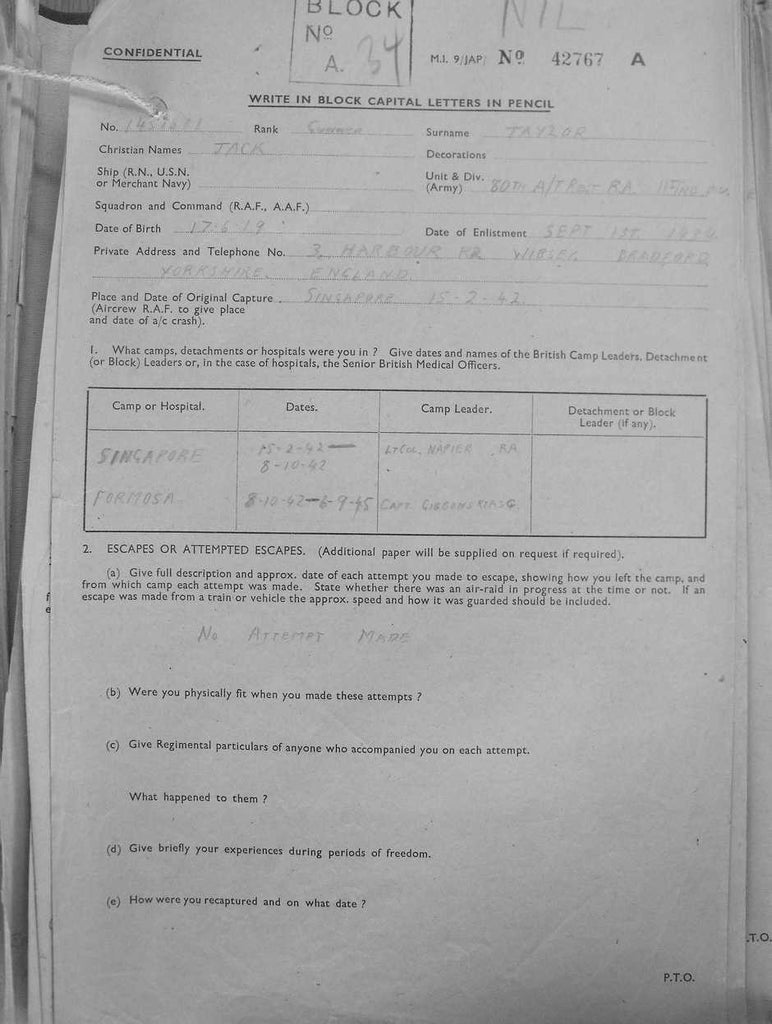 BLOCK
Nº
A. 34
NIL
CONFIDENTIAL
M.I. 9/JAP/ Nº 42767 A
WRITE IN BLOCK CAPITAL LETTERS IN PENCIL
No. Rank GUNNER Surname TAYLOR
Christian Names JACK Decorations
Ship (R.N., U.S.N.
or Merchant Navy)
Unit & Div.
(Army) 80TH A/T REGT RA
Squadron and Command (R.A.F., A.A.F.)
Date of Birth 17-6-19 Date of Enlistment SEPT 1ST 1939
Private Address and Telephone No. 3, HARBOUR RD WIBSEY BRADFORD
YORKSHIRE. ENGLAND.
Place and Date of Original Capture SINGAPORE 15-2-42
(Aircrew R.A.F. to give place
and date of a/c crash).
1. What camps, detachments or hospitals were you in ? Give dates and names of the British Camp Leaders, Detachment
(or Block) Leaders or, in the case of hospitals, the Senior British Medical Officers.
Camp or Hospital. Dates. Camp Leader. Detachment or Block
Leader (if any).
SINGAPORE 15-2-42— LT COL. NAPIER RA
8-10-42
FORMOSA 8-10-42—6-9-45 CAPT GIBBONS RIASC
2. ESCAPES OR ATTEMPTED ESCAPES. (Additional paper will be supplied on request if required).
(a) Give full description and approx. date of each attempt you made to escape, showing how you left the camp, and
from which camp each attempt was made. State whether there was an air-raid in progress at the time or not. If an
escape was made from a train or vehicle the approx. speed and how it was guarded should be included.
NO ATTEMPT MADE
(b) Were you physically fit when you made these attempts ?
(c) Give Regimental particulars of anyone who accompanied you on each attempt.
What happened to them ?
(d) Give briefly your experiences during periods of freedom.
(e) How were you recaptured and on what date ?
.T.O.
P.T.O.